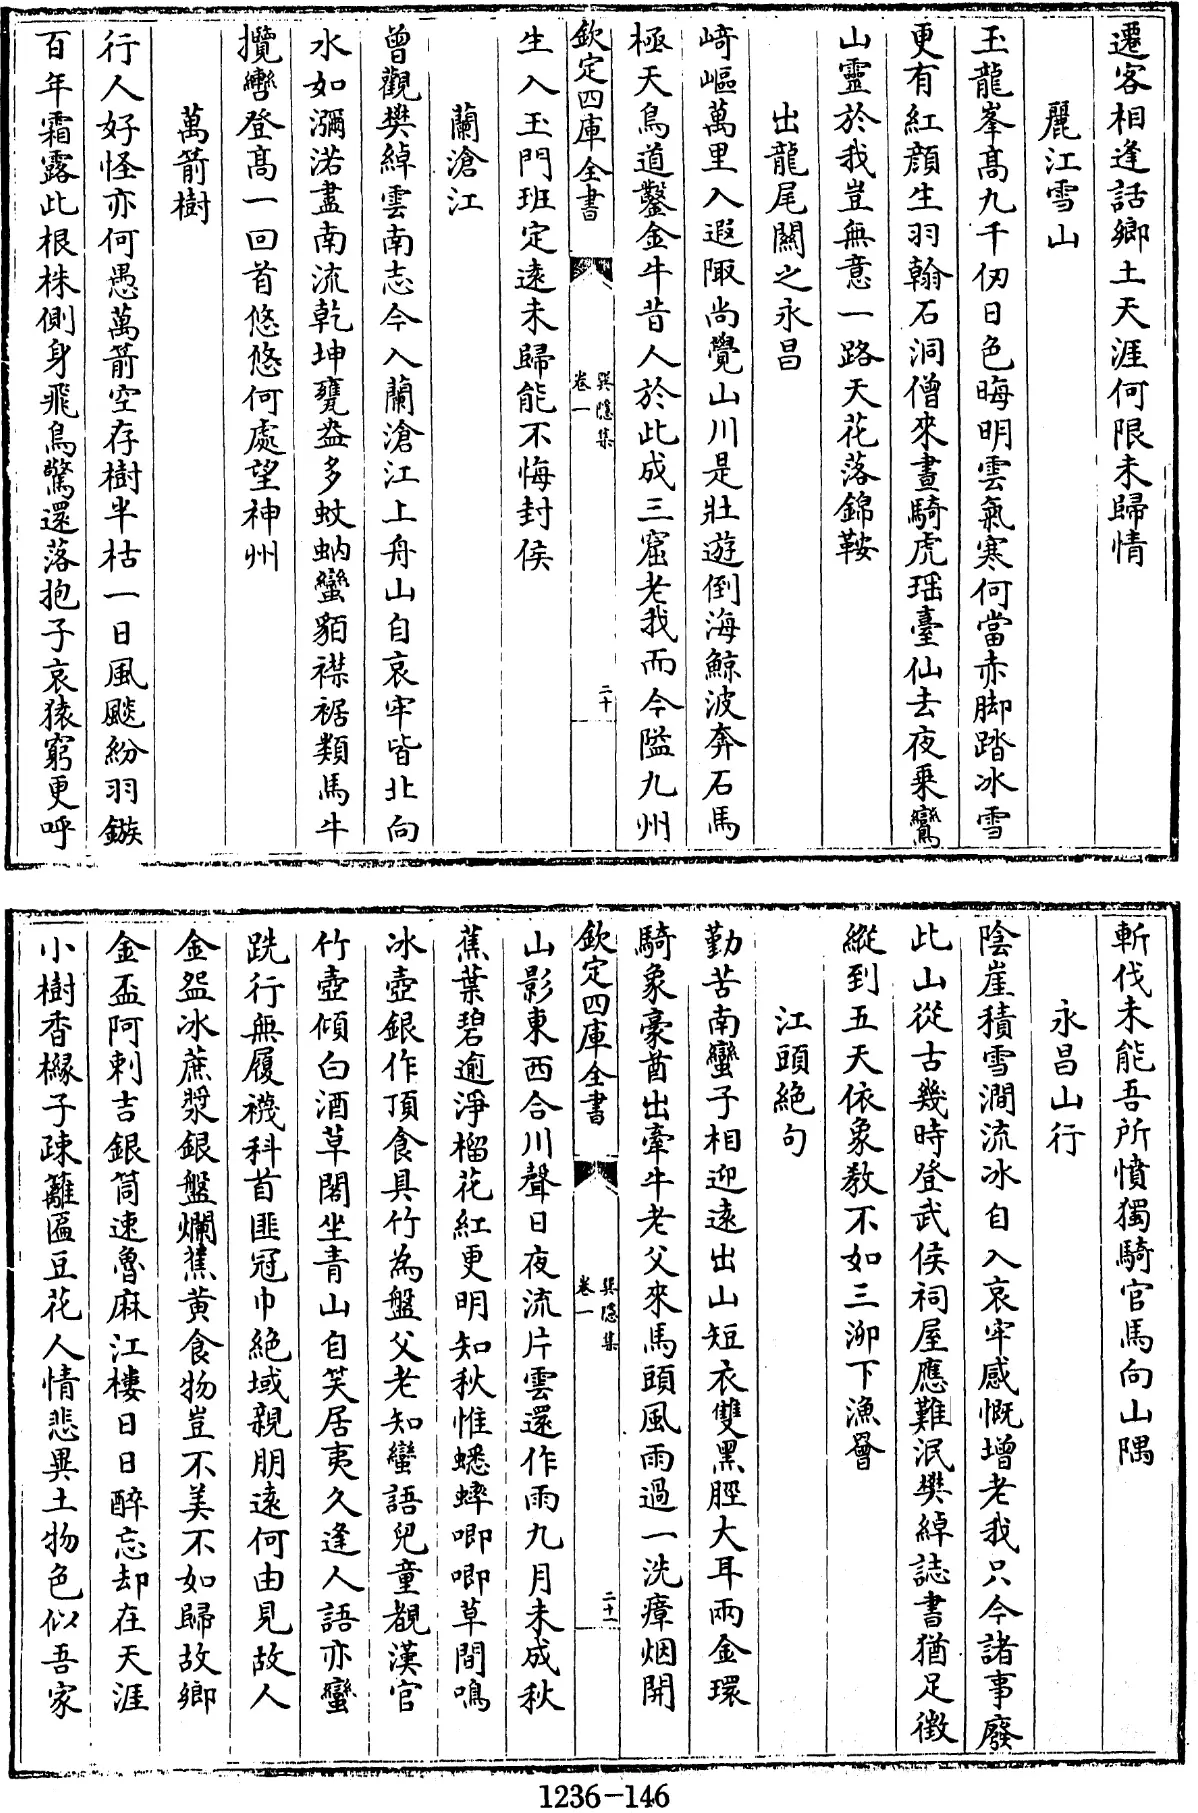 遷客相逢話鄉土天涯何限未歸情
麗江雪山
玉龍峯髙九千仞日色晦明雲氣寒何當赤脚踏冰雪
更有紅顔生羽翰石洞僧來晝騎虎瑶臺仙去夜乗鸞
山靈於我豈無意一路天花落錦鞍
出龍尾闗之永昌
﨑嶇萬里入遐陬尚覺山川是壯遊倒海鯨波奔石馬
極天鳥道鑿金牛昔人於此成三窟老我而今隘九州
欽定四庫全書
巽隱集
卷一
二十
生入玉門班定逺未歸能不悔封侯
蘭滄江
曾觀樊綽雲南志今入蘭滄江上舟山自哀牢皆北向
水如瀰渃盡南流乾坤甕盎多蚊蚋蠻貊襟裾類馬牛
攬轡登髙一回首悠悠何處望神州
萬箭樹
行人好怪亦何愚萬箭空存樹半枯一日風飈紛羽鏃
百年霜露此根株側身飛鳥驚還落抱子哀猿窮更呼
斬伐未能吾所憤獨騎官馬向山隅
永昌山行
陰崖積雪澗流冰自入哀牢感慨增老我只今諸事廢
此山從古幾時登武侯祠屋應難泯樊綽誌書猶足徴
縱到五天依象教不如三泖下漁罾
江頭絶句
勤苦南蠻子相迎逺出山短衣雙黑脛大耳兩金環
騎象豪酋出牽牛老父來馬頭風雨過一洗瘴烟開
欽定四庫全書
巽隱集
卷一
二十一
山影東西合川聲日夜流片雲還作雨九月未成秋
蕉葉碧逾淨榴花紅更明知秋惟蟋蟀唧唧草間鳴
冰壺銀作頂食具竹為盤父老知蠻語兒童覩漢官
竹壺傾白酒草閣坐青山自笑居夷久逢人語亦蠻
跣行無履襪科首匪冠巾絶域親朋逺何由見故人
金盌冰蔗漿銀盤爛蕉黄食物豈不美不如歸故鄉
金盃阿剌吉銀筒速魯麻江樓日日醉忘却在天涯
小樹香橼子疎籬匾豆花人情悲異土物色似吾家
1236-146